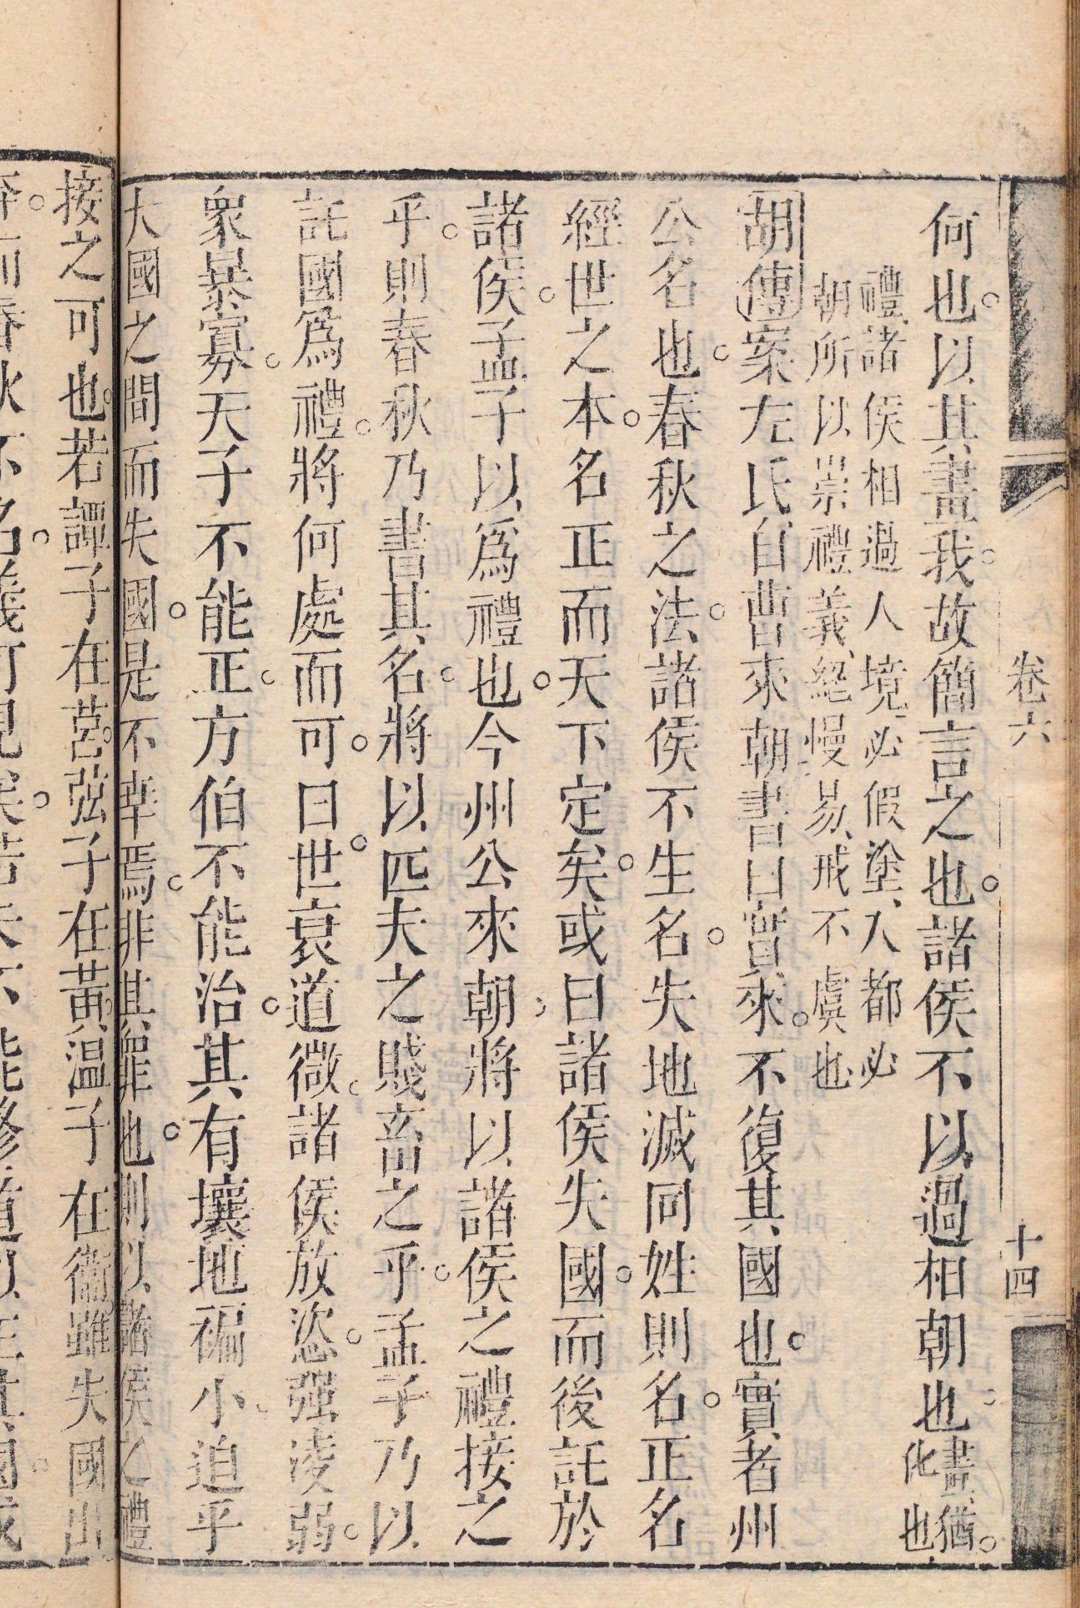 卷六
十四
何也以其畫我故簡言之也諸侯不以過相朝也畫猶
化也
禮諸侯相過人境必假塗入都必
朝所以崇禮義絕慢易戒不虞也
胡傳案左氏自曹來朝書曰寔來不復其國也實者州
公名也春秋之法諸侯不生名失地滅同姓則名正名
經世之本名正而天下定矣或曰諸侯失國而後託於
諸侯孟子以爲禮也今州公來朝將以諸侯之禮接之
乎則春秋乃書其名將以匹夫之賤畜之乎孟子乃以
託國爲禮將何處而可曰世衰道微諸侯放恣强淩弱
衆暴寡天子不能正方伯不能治其有壤地褊小迫乎
大國之間而失國是不幸焉非其罪也則以諸侯之禮
接之可也若譚子在莒弦子在黃温子在衞雖失國出
奔而春秋不名義可見矣若夫不能修道以正其國或